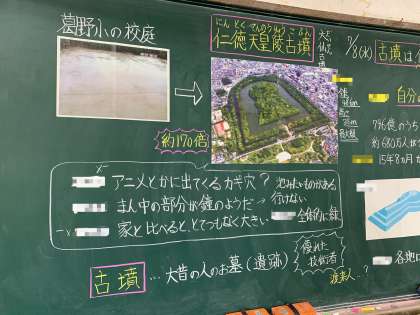 葛野小の校庭
にんとくてんのうりょうこふん
仁徳天皇陵古墳
大仙古墳
約170倍
7/8(水)
古墳は
自分
796億のうち
約680万人
15年8ヵ月
アニメとかに出てくるカギ穴?
まん中の部分が鐘のようだ→行けない
家と比べると、とてつもなく大きい
全体的に緑
古墳…大昔の人のお墓(遺跡)
優れた技術者
渡来人…?
各地